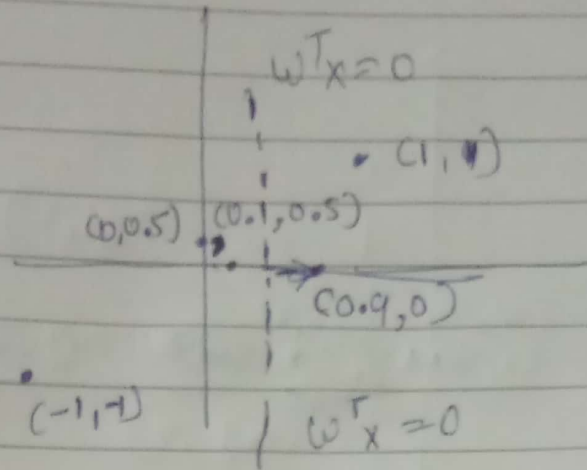 ωᵀx = 0
(1, 1)
(0, 0.5) (0.1, 0.5)
(0.9, 0)
(-1, -1)
ωᵀx = 0